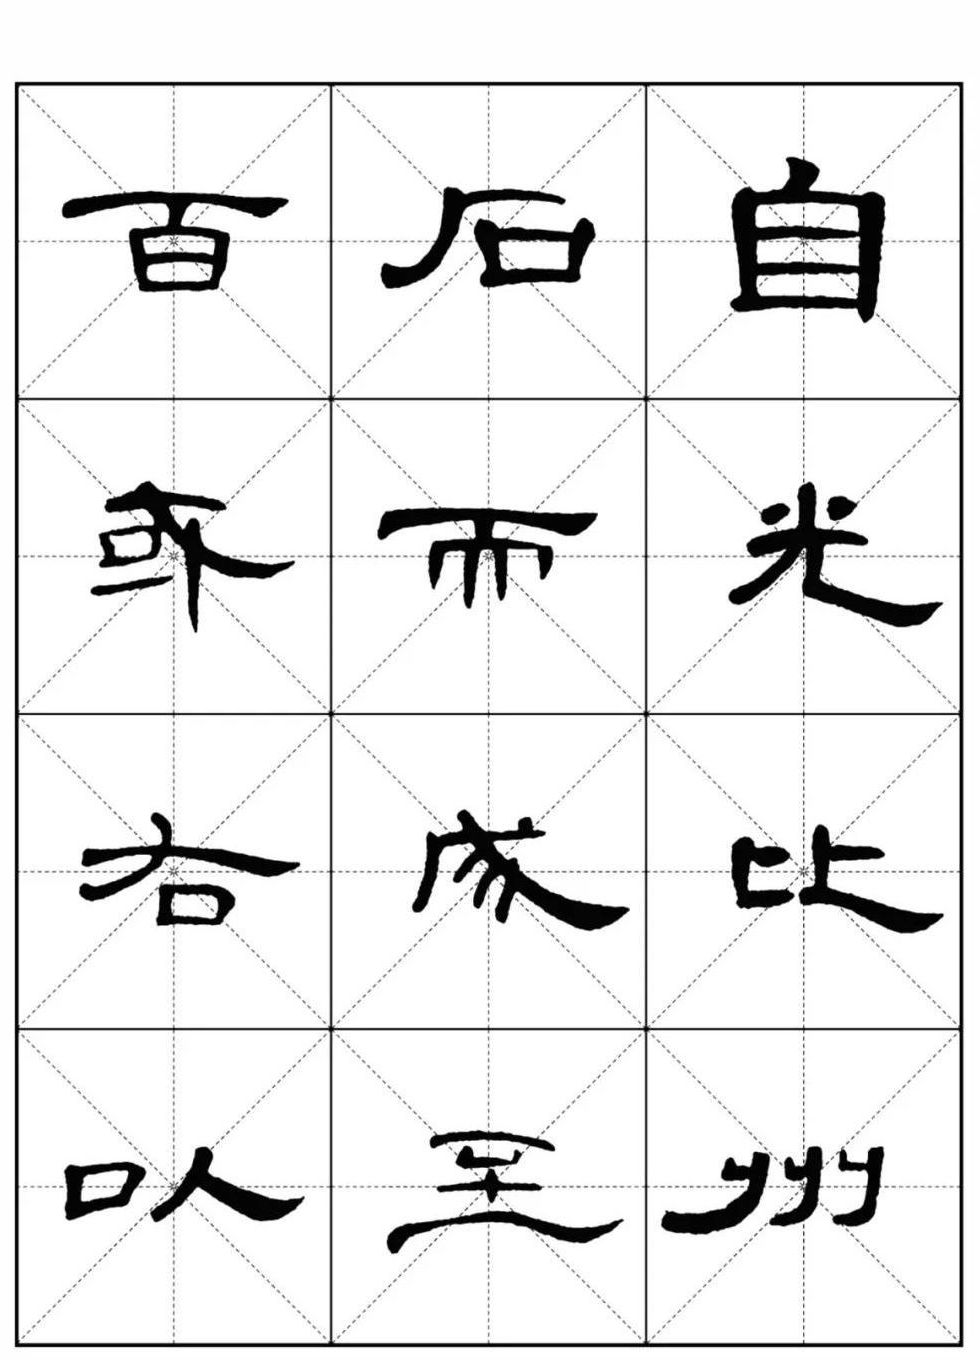 百石自
或而光
右成比
以至州